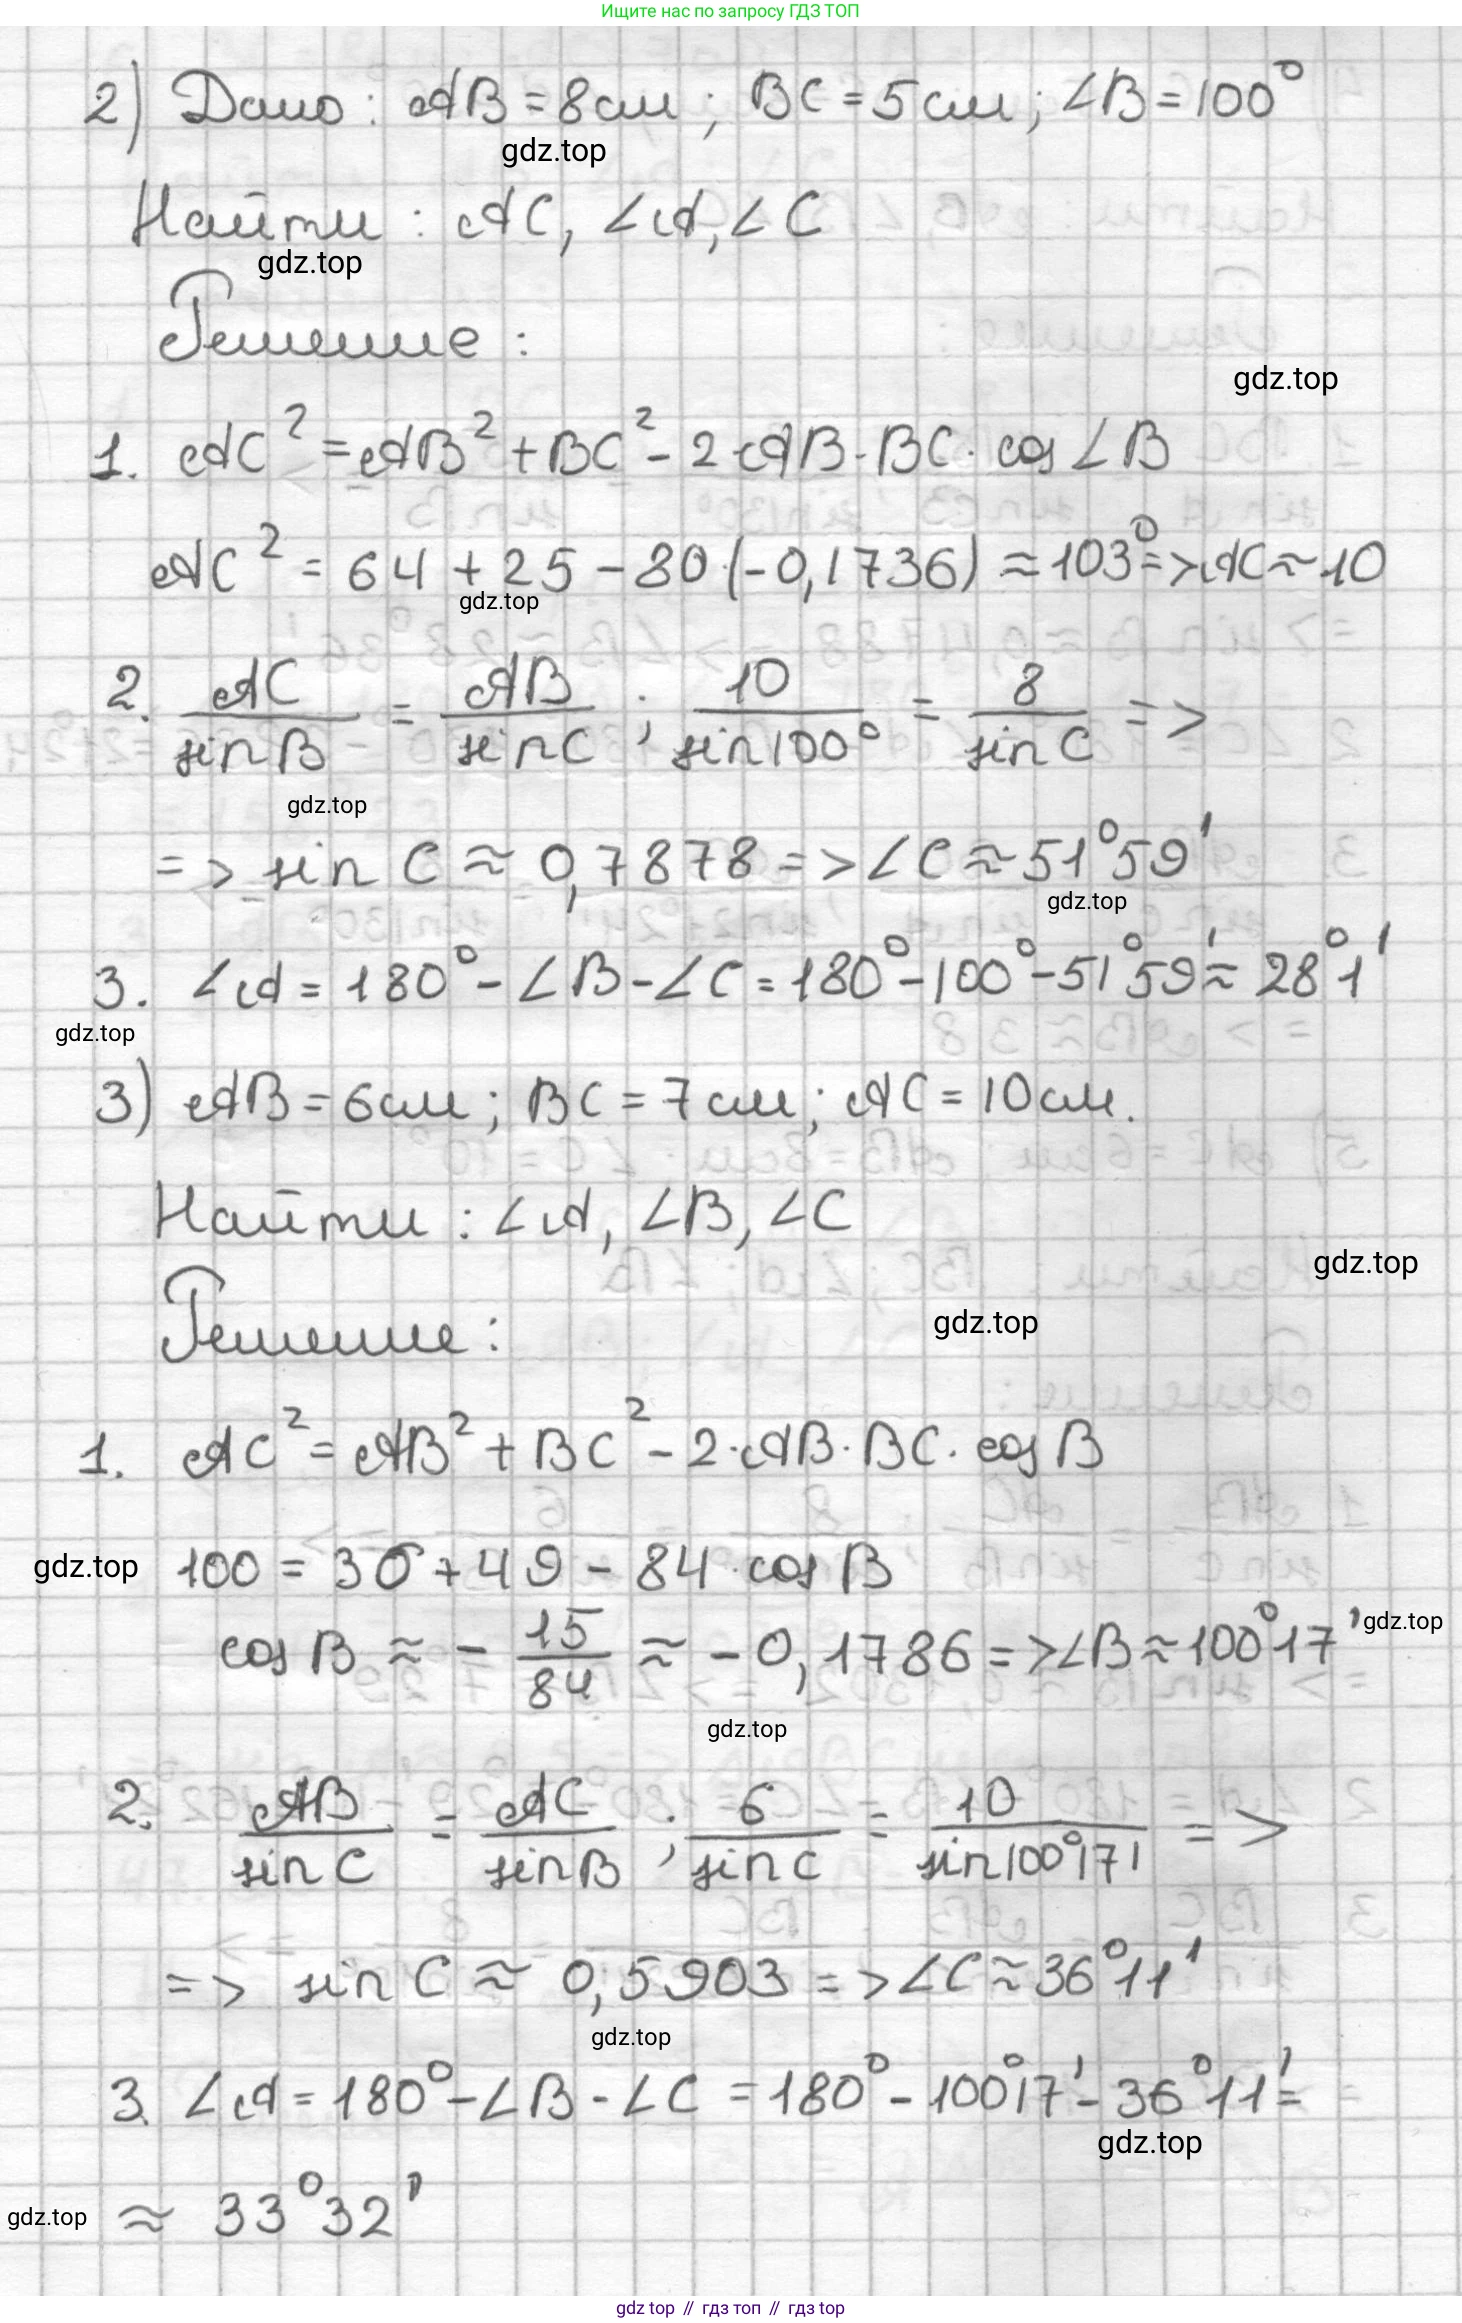 Ищите нас по запросу ГДЗ ТОП
2) Дано: AB = 8 см; BC = 5 см; ∠B = 100°
gdz.top
Найти: AC, ∠A, ∠C
gdz.top
Решение:
gdz.top
1. AC² = AB² + BC² - 2·AB·BC·cos∠B
AC² = 64 + 25 - 80·(-0,1736) ≈ 103° => AC ≈ 10
gdz.top
2. AC/sinB = AB/sinC; 10/sin100° = 8/sinC =>
gdz.top
=> sin C ≈ 0,7878 => ∠C ≈ 51°59'
gdz.top
3. ∠A = 180° - ∠B - ∠C = 180° - 100° - 51°59' ≈ 28°1'
gdz.top
3) AB = 6 см; BC = 7 см; AC = 10 см.
Найти: ∠A, ∠B, ∠C
gdz.top
Решение:
gdz.top
1. AC² = AB² + BC² - 2·AB·BC·cosB
gdz.top 100 = 36 + 49 - 84·cosB
cosB ≈ -15/84 ≈ -0,1786 => ∠B ≈ 100°17' gdz.top
gdz.top
2. AB/sinC = AC/sinB; 6/sinC = 10/sin100°17' =>
=> sin C ≈ 0,5903 => ∠C ≈ 36°11'
gdz.top
3. ∠A = 180° - ∠B - ∠C = 180° - 100°17' - 36°11' =
gdz.top
gdz.top ≈ 33°32'
gdz top // гдз топ // гдз top